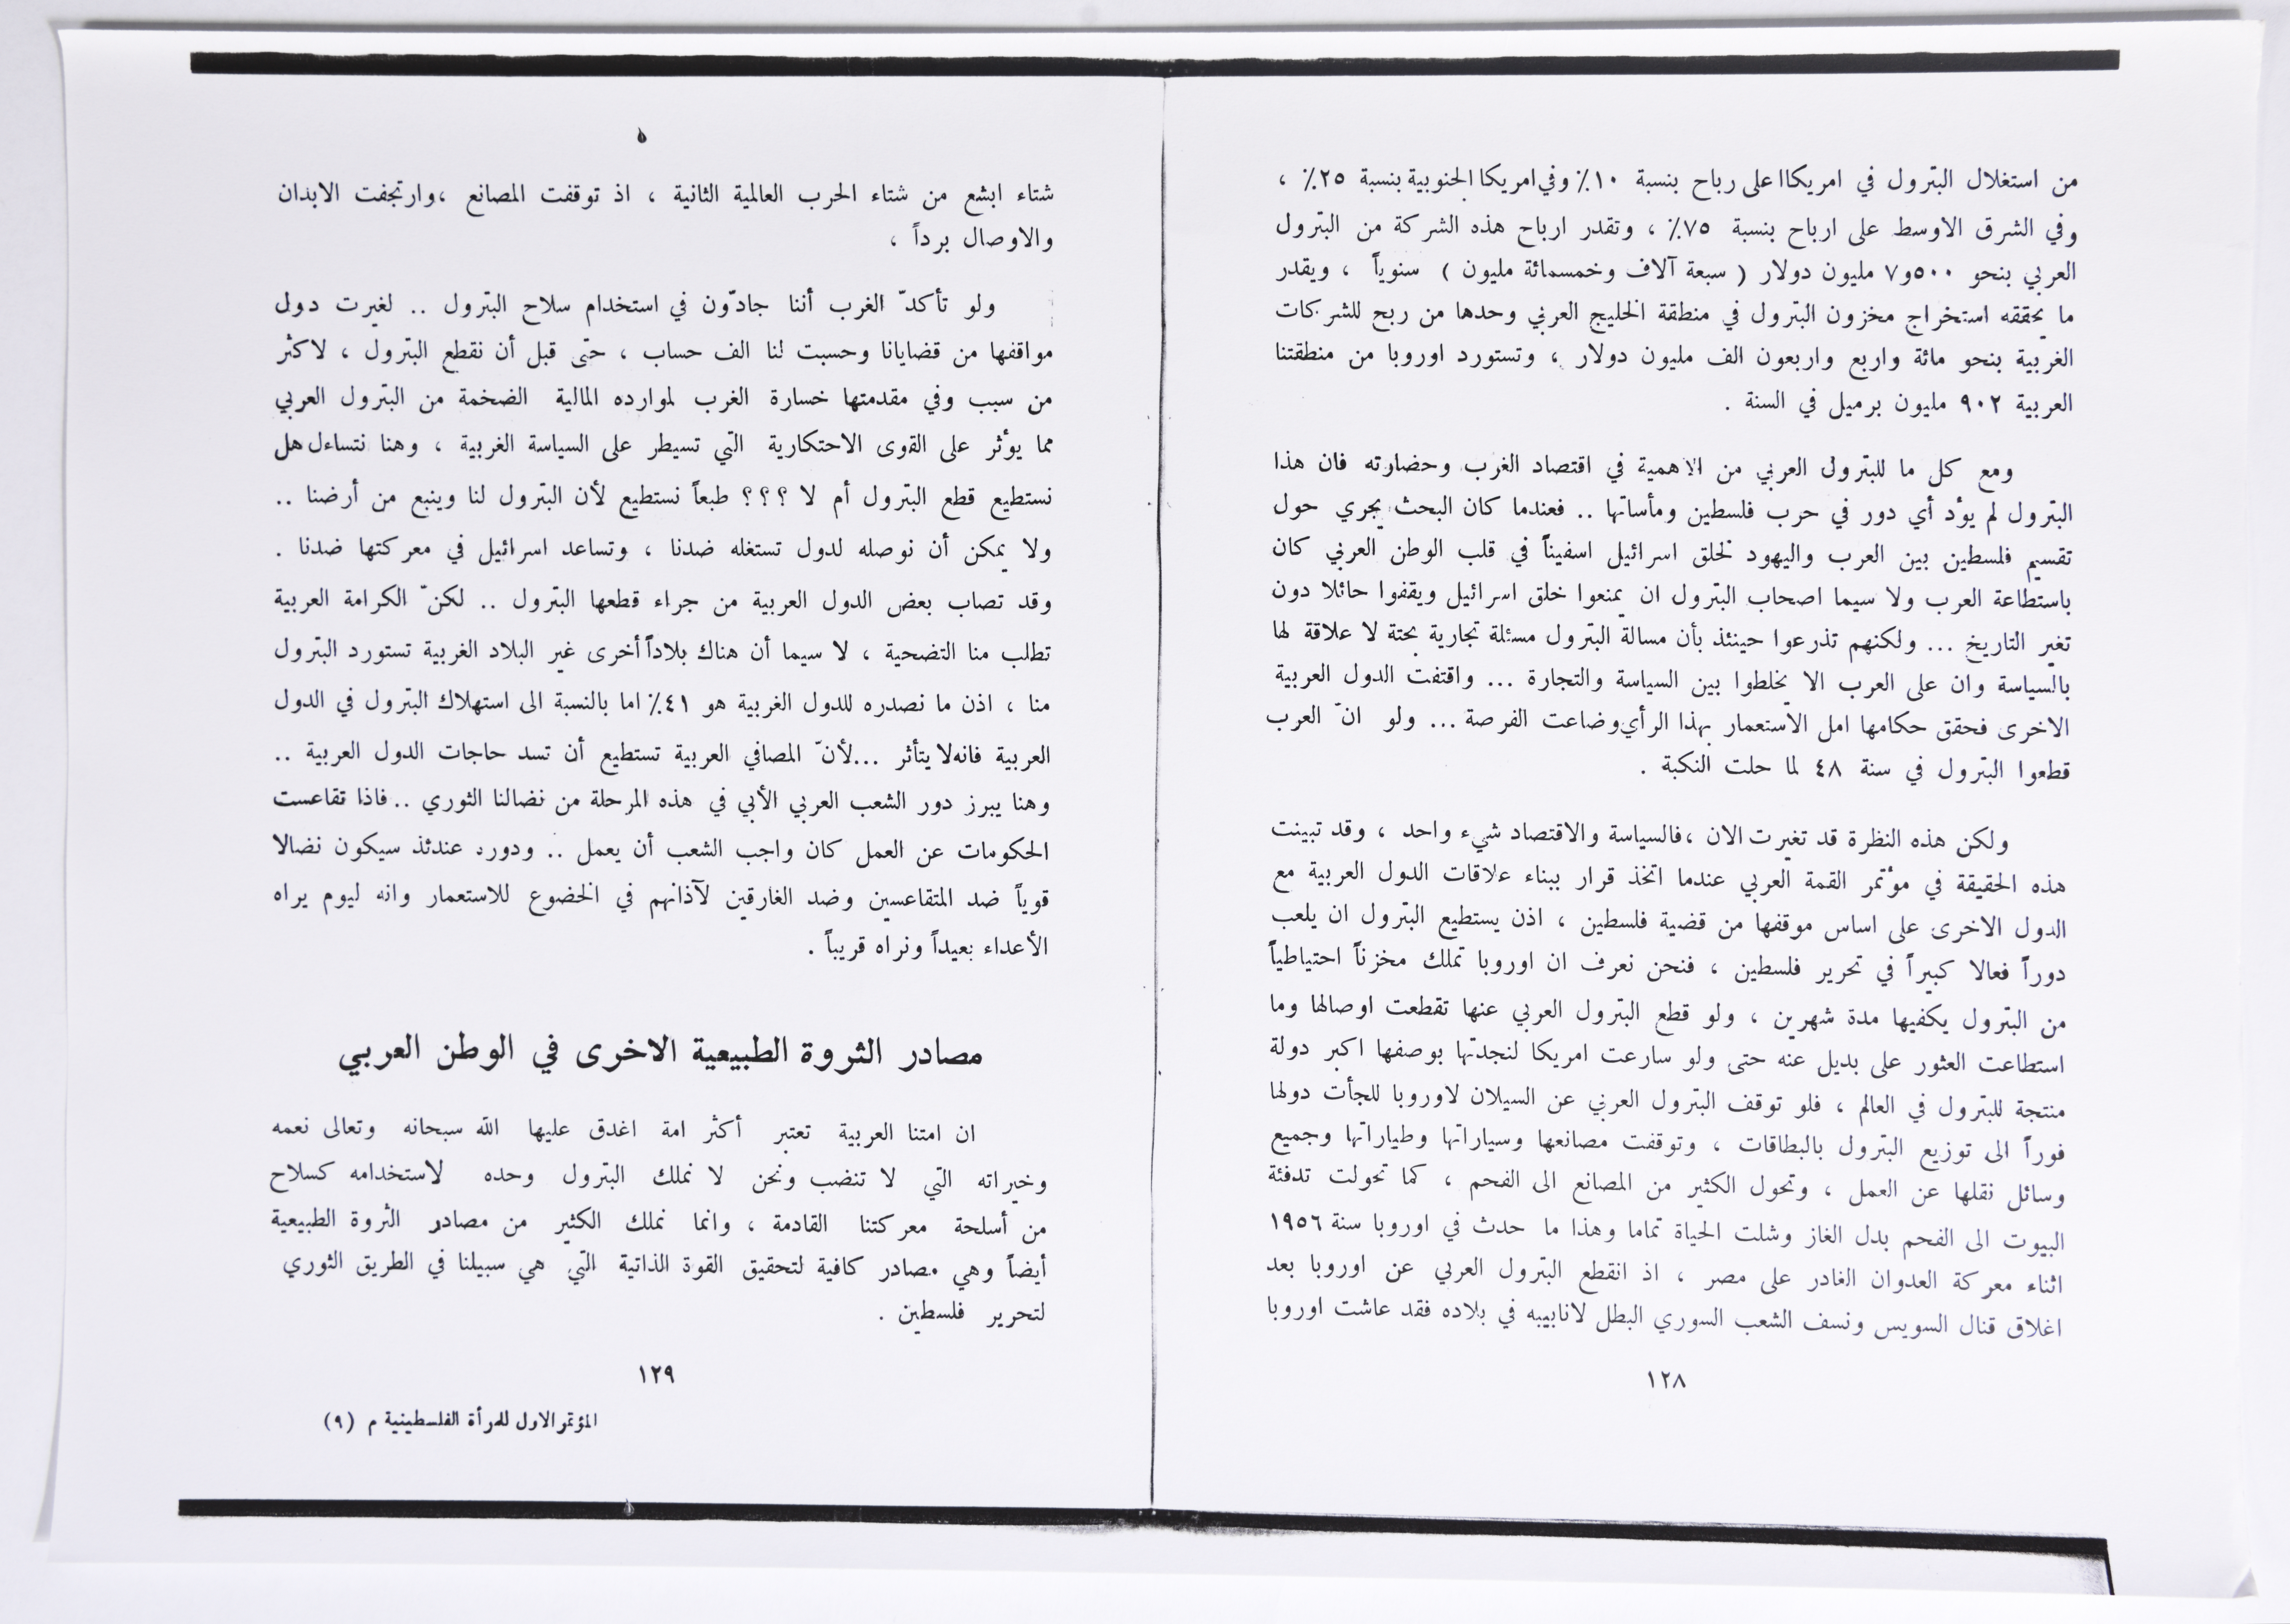 من استغلال البترول في امريكا اعلى رباح بنسبة ١٠٪ وفي امريكا الجنوبية بنسبة ٢٥٪ ،
وفي الشرق الاوسط على ارباح بنسبة ٧٥٪ ، وتقدر ارباح هذه الشركة من البترول
العربي بنحو ٥٠٠و٧ مليون دولار ( سبعة آلاف وخمسمائة مليون ) سنوياً ، ويقدر
ما يحققه استخراج مخزون البترول في منطقة الخليج العربي وحدها من ربح للشركات
الغربية بنحو مائة واربع واربعون الف مليون دولار ، وتستورد اوروبا من منطقتنا
العربية ٩٠٢ مليون برميل في السنة .
ومع كل ما للبترول العربي من الاهمية في اقتصاد الغرب وحضارته فان هذا
البترول لم يؤد أي دور في حرب فلسطين ومأساتها .. فعندما كان البحث يجري حول
تقسيم فلسطين بين العرب واليهود لخلق اسرائيل اسفيناً في قلب الوطن العربي كان
باستطاعة العرب ولا سيما اصحاب البترول ان يمنعوا خلق اسرائيل ويقفوا حائلا دون
تغير التاريخ ... ولكنهم تذرعوا حينئذ بأن مسالة البترول مسئلة تجارية بحتة لا علاقة لها
بالسياسة وان على العرب الا يخلطوا بين السياسة والتجارة ... واقتفت الدول العربية
الاخرى فحقق حكامها امل الاستعمار بهذا الرأي وضاعت الفرصة ... ولو انّ العرب
قطعوا البترول في سنة ٤٨ لما حلت النكبة .
ولكن هذه النظرة قد تغيرت الان ،فالسياسة والاقتصاد شيء واحد ، وقد تبينت
هذه الحقيقة في مؤتمر القمة العربي عندما اتخذ قرار ببناء علاقات الدول العربية مع
الدول الاخرى على اساس موقفها من قضية فلسطين ، اذن يستطيع البترول ان يلعب
دوراً فعالا كبيراً في تحرير فلسطين ، فنحن نعرف ان اوروبا تملك مخزناً احتياطياً
من البترول يكفيها مدة شهرين ، ولو قطع البترول العربي عنها تقطعت اوصالها وما
استطاعت العثور على بديل عنه حتى ولو سارعت امريكا لنجدتها بوصفها اكبر دولة
منتجة للبترول في العالم ، فلو توقف البترول العربي عن السيلان لاوروبا للجأت دولها
فوراً الى توزيع البترول بالبطاقات ، وتوقفت مصانعها وسياراتها وطياراتها وجميع
وسائل نقلها عن العمل ، وتحول الكثير من المصانع الى الفحم ، كما تحولت تدفئة
البيوت الى الفحم بدل الغاز وشلت الحياة تماما وهذا ما حدث في اوروبا سنة ١٩٥٦
اثناء معركة العدوان الغادر على مصر ، اذ انقطع البترول العربي عن اوروبا بعد
اغلاق قنال السويس ونسف الشعب السوري البطل لانابيبه في بلاده فقد عاشت اوروبا
١٢٨
شتاء ابشع من شتاء الحرب العالمية الثانية ، اذ توقفت المصانع ،وارتجفت الابدان
والاوصال برداً ،
ولو تأكدّ الغرب أننا جادّون في استخدام سلاح البترول .. لغيرت دول
مواقفها من قضايانا وحسبت لنا الف حساب ، حتى قبل أن نقطع البترول ، لاكثر
من سبب وفي مقدمتها خسارة الغرب لموارده المالية الضخمة من البترول العربي
مما يؤثر على القوى الاحتكارية التي تسيطر على السياسة الغربية ، وهنا نتساءل هل
نستطيع قطع البترول أم لا ؟؟؟ طبعاً نستطيع لأن البترول لنا وينبع من أرضنا ..
ولا يمكن أن نوصله لدول تستغله ضدنا ، وتساعد اسرائيل في معركتها ضدنا .
وقد تصاب بعض الدول العربية من جراء قطعها البترول .. لكنّ الكرامة العربية
تطلب منا التضحية ، لا سيما أن هناك بلاداً أخرى غير البلاد الغربية تستورد البترول
منا ، اذن ما نصدره للدول الغربية هو ٤١٪ اما بالنسبة الى استهلاك البترول في الدول
العربية فانه لا يتأثر ...لأنّ المصافي العربية تستطيع أن تسد حاجات الدول العربية ..
وهنا يبرز دور الشعب العربي الأبي في هذه المرحلة من نضالنا الثوري .. فاذا تقاعست
الحكومات عن العمل كان واجب الشعب أن يعمل .. ودوره عندئذ سيكون نضالا
قوياً ضد المتقاعسين وضد الغارقين لآذانهم في الخضوع للاستعمار وانه ليوم يراه
الأعداء بعيداً ونراه قريباً .
مصادر الثروة الطبيعية الاخرى في الوطن العربي
ان امتنا العربية تعتبر أكثر امة اغدق عليها الله سبحانه وتعالى نعمه
وخيراته التي لا تنضب ونحن لا نملك البترول وحده لاستخدامه كسلاح
من أسلحة معركتنا القادمة ، وانما نملك الكثير من مصادر الثروة الطبيعية
أيضاً وهي مصادر كافية لتحقيق القوة الذاتية التي هي سبيلنا في الطريق الثوري
لتحرير فلسطين .
١٢٩
المؤتمر الاول للمرأة الفلسطينية م (٩)